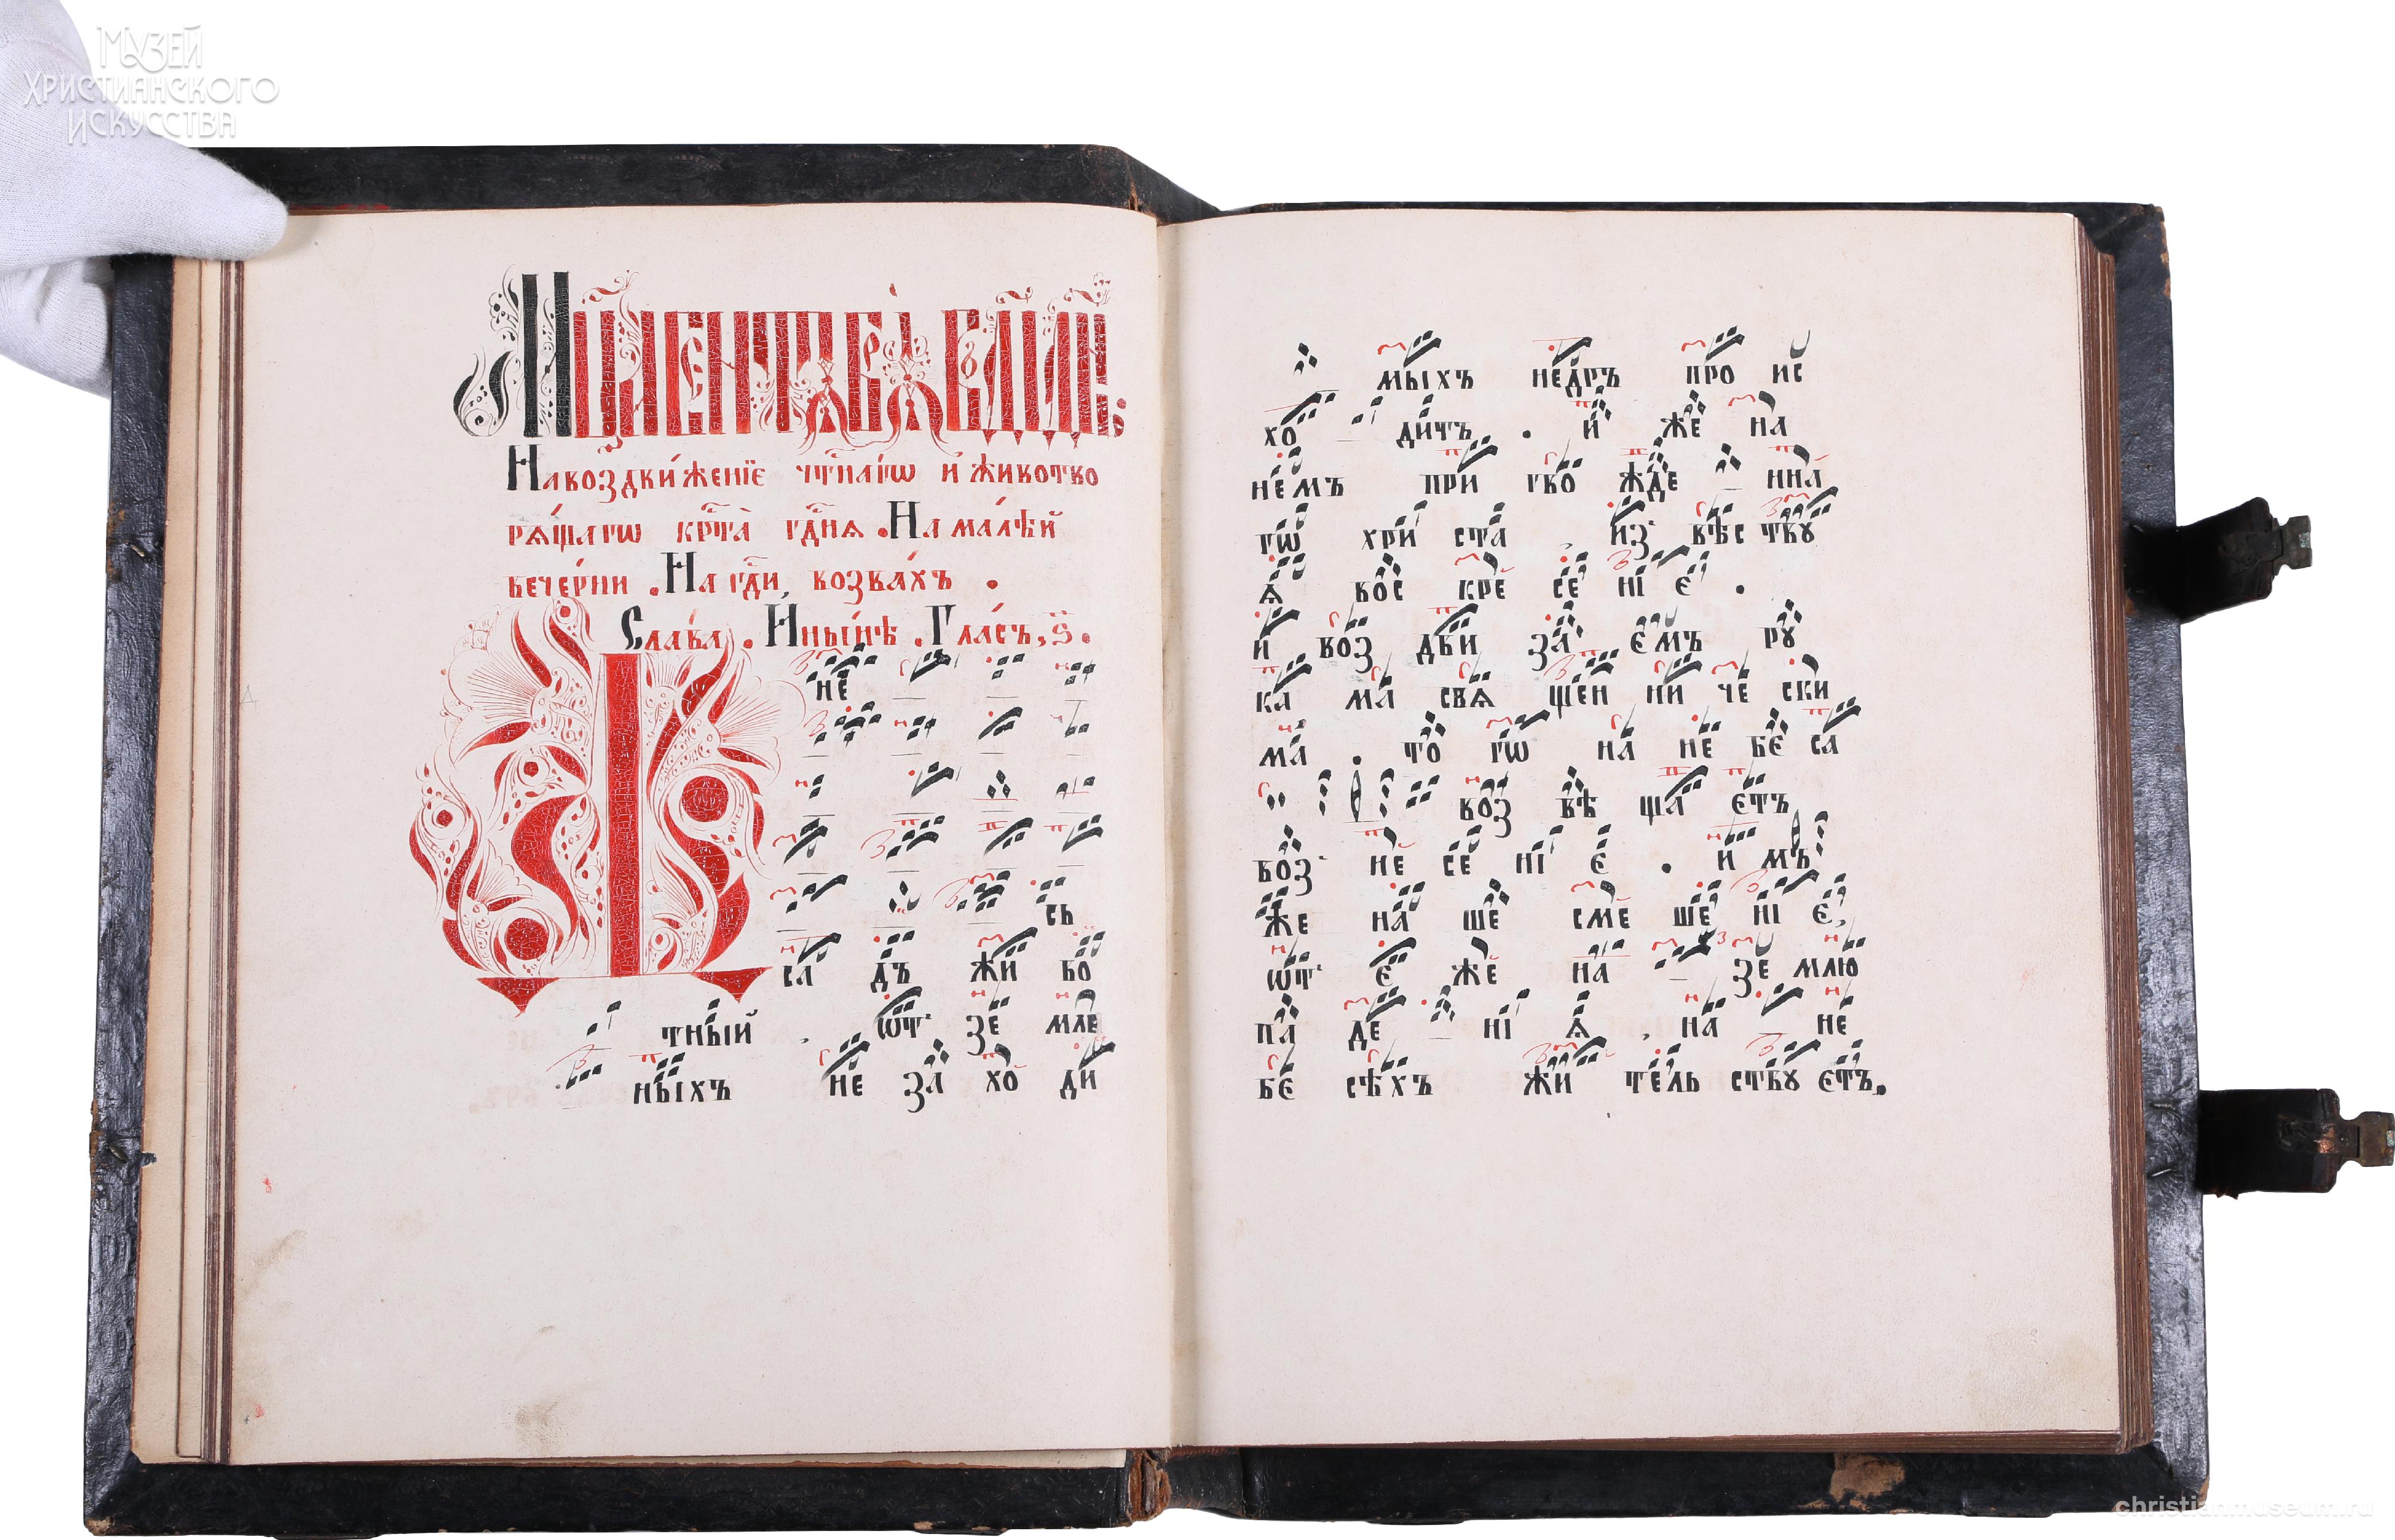 Музей
Христианского
Искусства
Мц҃а сентѧбрѧ въ д҃і дн҃ь.
На воздви́женїе чⷭ҇тна́гѡ и҆ животво
рѧ́щагѡ крⷭ҇та̀ гдⷭ҇нѧ . На ма́лѣй
вече́рни . На гдⷭ҇и возва́хъ .
Сла́ва . И҆ ны́нѣ . Гла́съ, ѕ҃.
Дне
сь
са дъ жи во
тный , ѿ зе мле
ныхъ не за хо ди
мыхъ недръ про ис
хо дитъ . и же на
немъ при гво жде нна
гѡ хри ста , из вѣс тву
ѧ вос кре се ні є .
и воз дви за емъ рꙋ
ка ма свѧ щен ни че ски
ма . то гѡ на не бе са
воз вѣ ща етъ
воз не се ні є . и мъ
же на ше сме ше ні є,
ѿ є же на зе млю
па де ні ѧ , на не
бе сѣхъ жи тель ствꙋ єтъ.
christianmuseum.ru